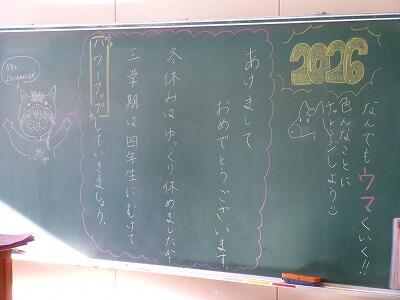 2026
なんでもウマくいく!!
色んなことに
チャレンジしよう
あけまして
おめでとうございます。
冬休みはゆっくり休めましたか?
三学期は四年生にむけて
パワーアップしていきましょう。